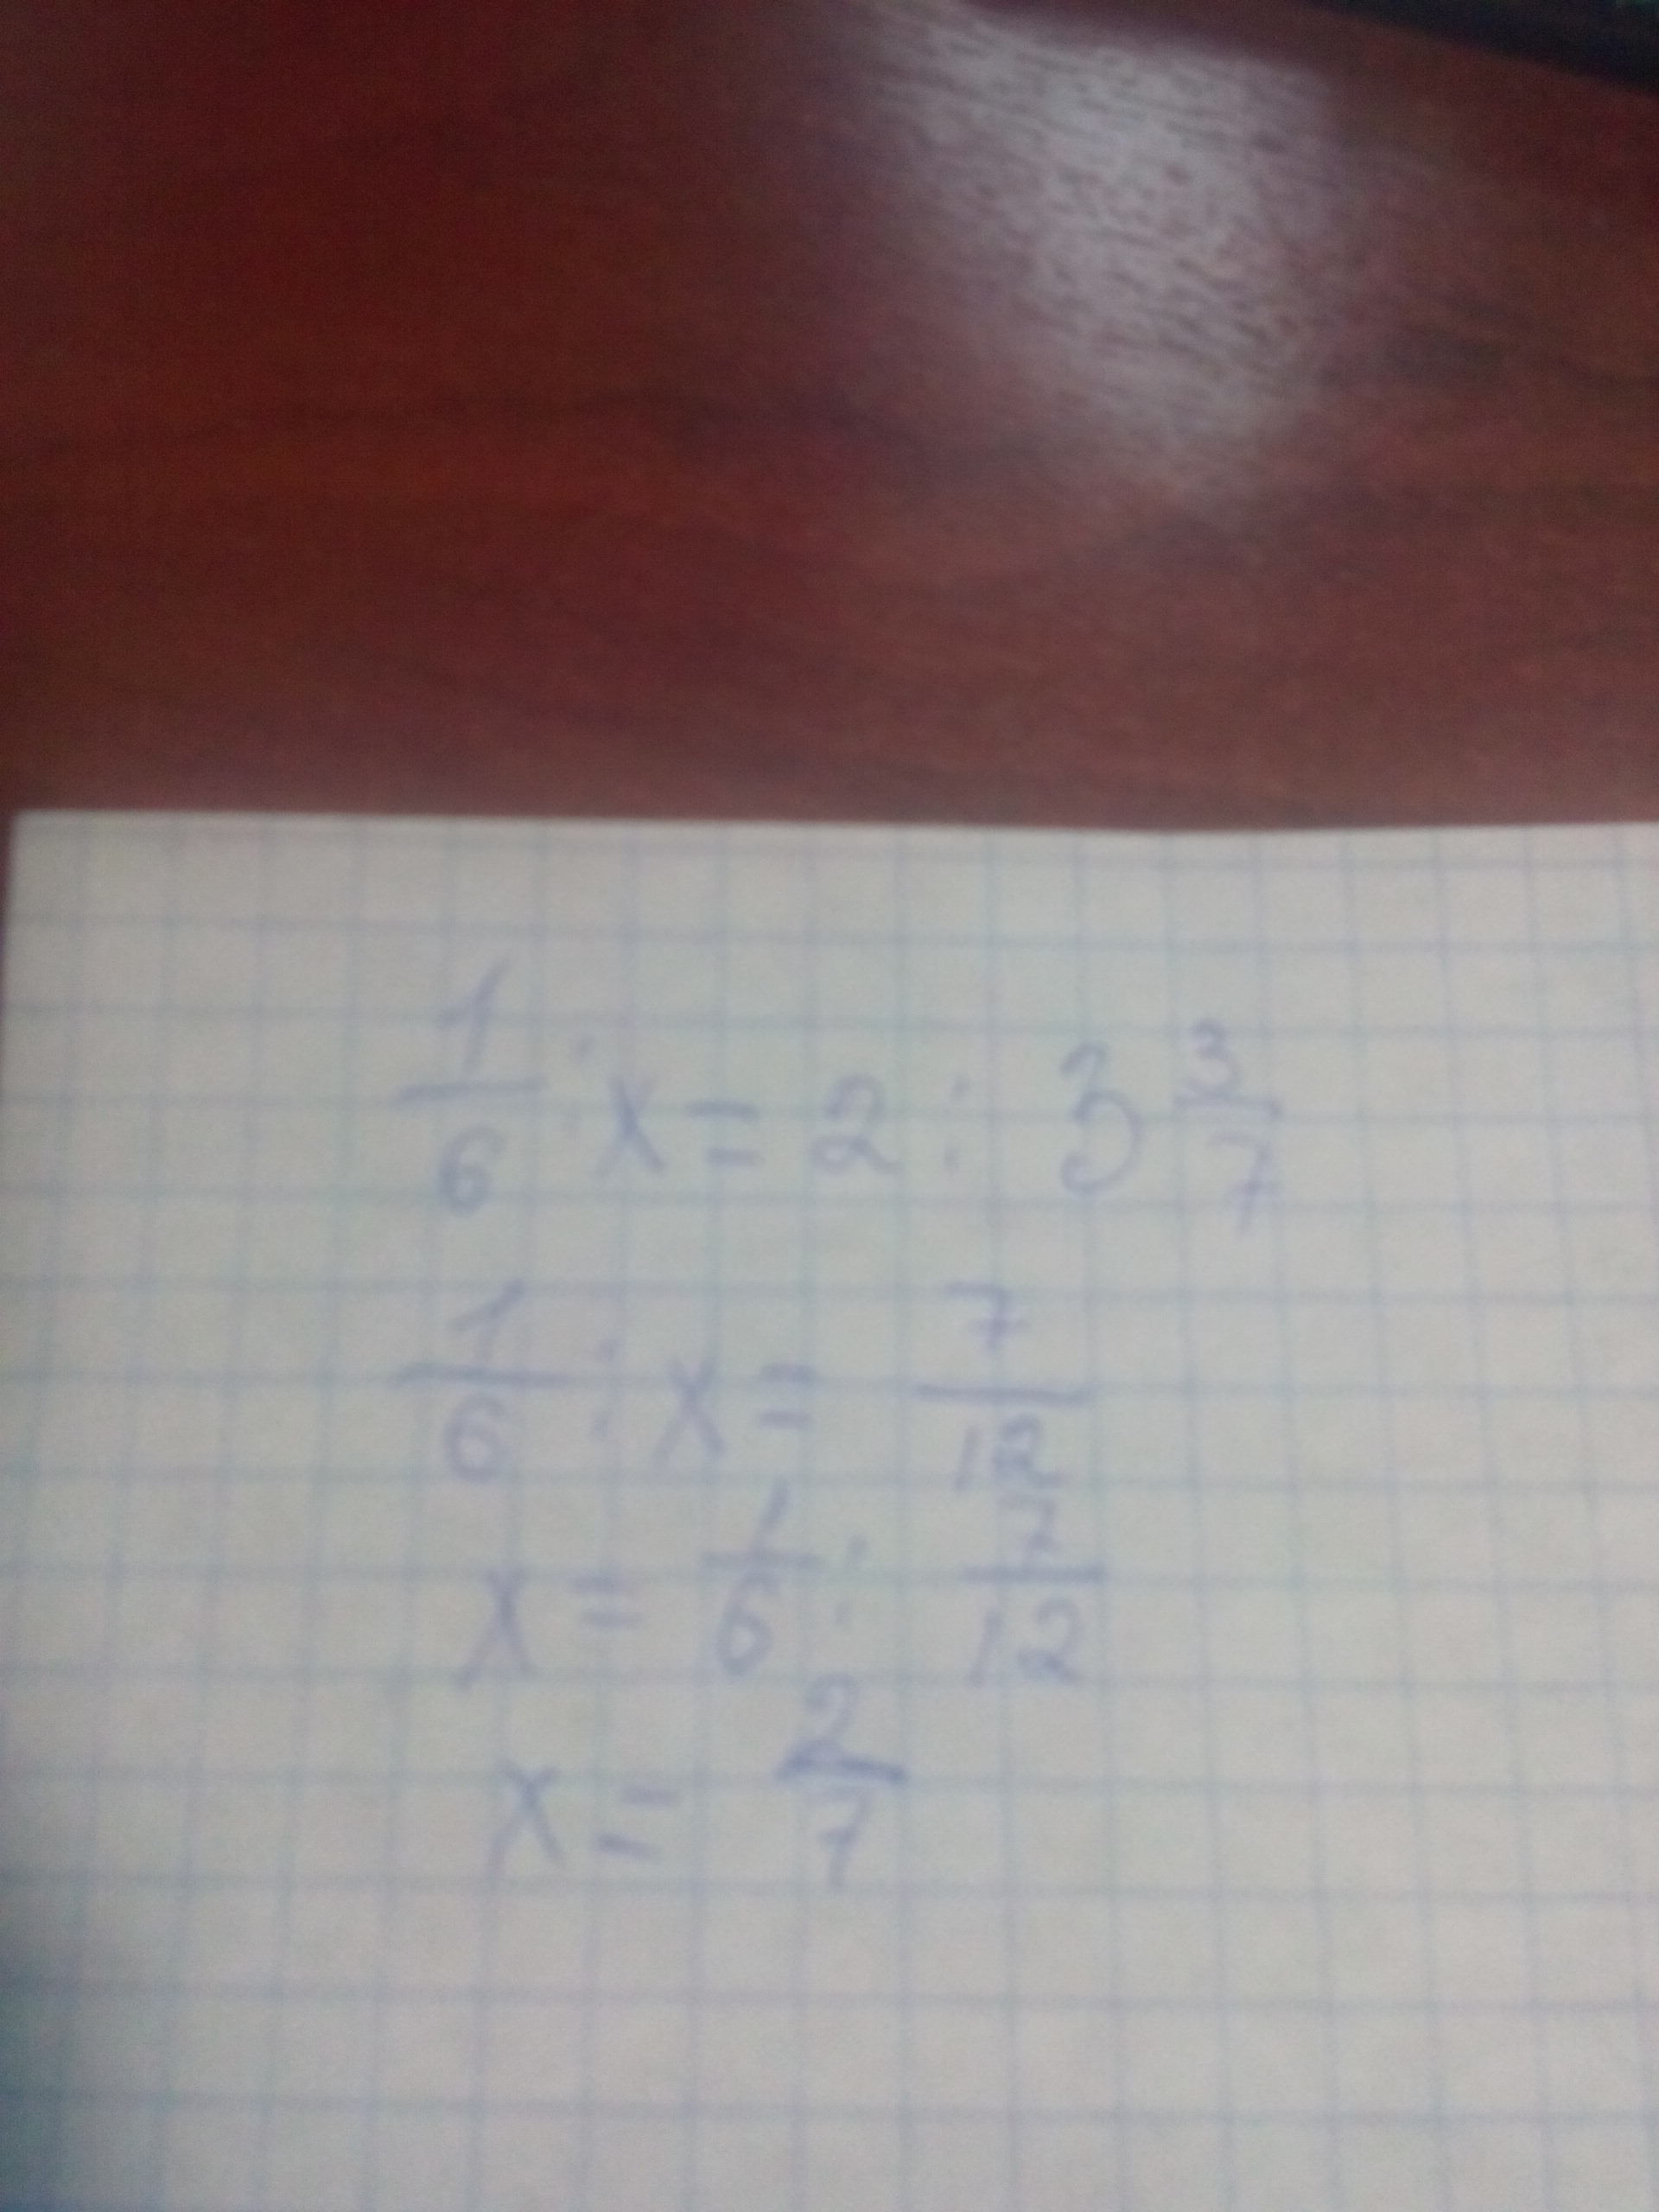 1/6 : x = 2 : 3 3/7
1/6 : x = 7/12
x = 1/6 : 7/12
x = 2/7